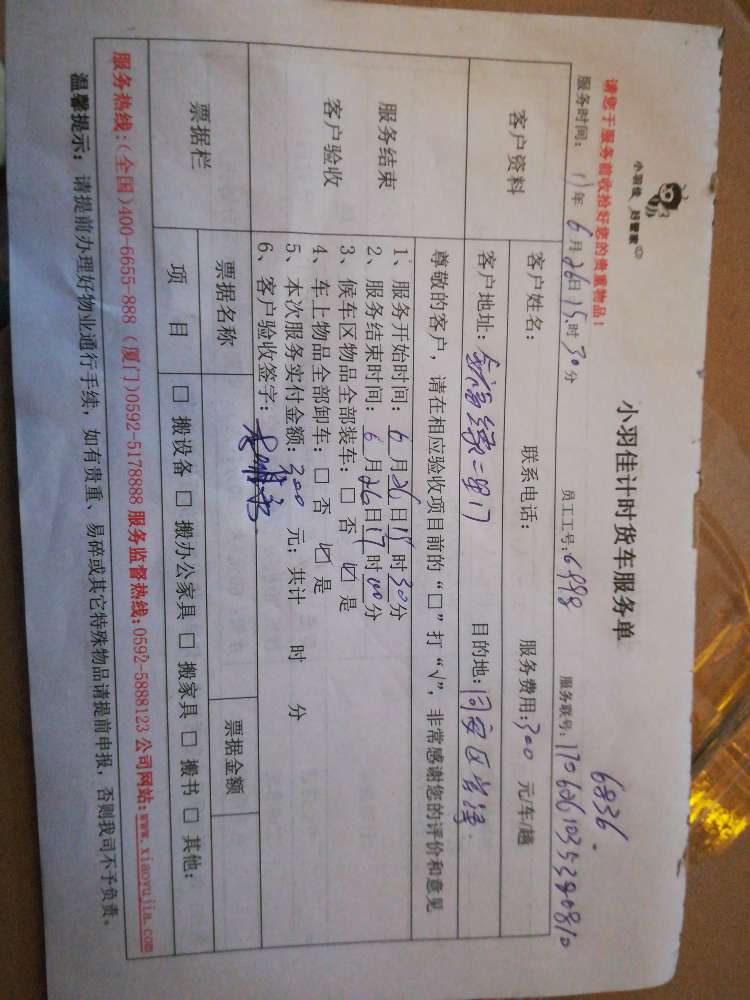 小羽佳 好管家
6836.
小羽佳计时货车服务单
请您于服务前收拾好您的贵重物品！
服务时间： 17年 6月26日15时30分 员工工号：6998 服务联号：
客户资料
客户姓名： 联系电话： 服务费用：300 元/车/趟
客户地址： 目的地：同安区
服务结束
客户验收
尊敬的客户，请在相应验收项目前的“□”打“√”，非常感谢您的评价和意见
1、服务开始时间：6月26日15时30分
2、服务结束时间：6月26日17时00分
3、候车区物品全部装车：□ 否 ☑ 是
4、车上物品全部卸车：□ 否 ☑ 是
5、本次服务实付金额：300 元；共计 时 分
6、客户验收签字：
票据栏
票据名称 票据金额
项 目 □ 搬设备 □ 搬办公家具 □ 搬家具 □ 搬书 □ 其他：
服务热线:(全国)400-6655-888 (厦门)0592-5178888 服务监督热线:0592-5888123 公司网站:www.xiaoyujia.com
温馨提示：请提前办理好物业通行手续，如有贵重、易碎或其它特殊物品请提前申报，否则我司不予负责。